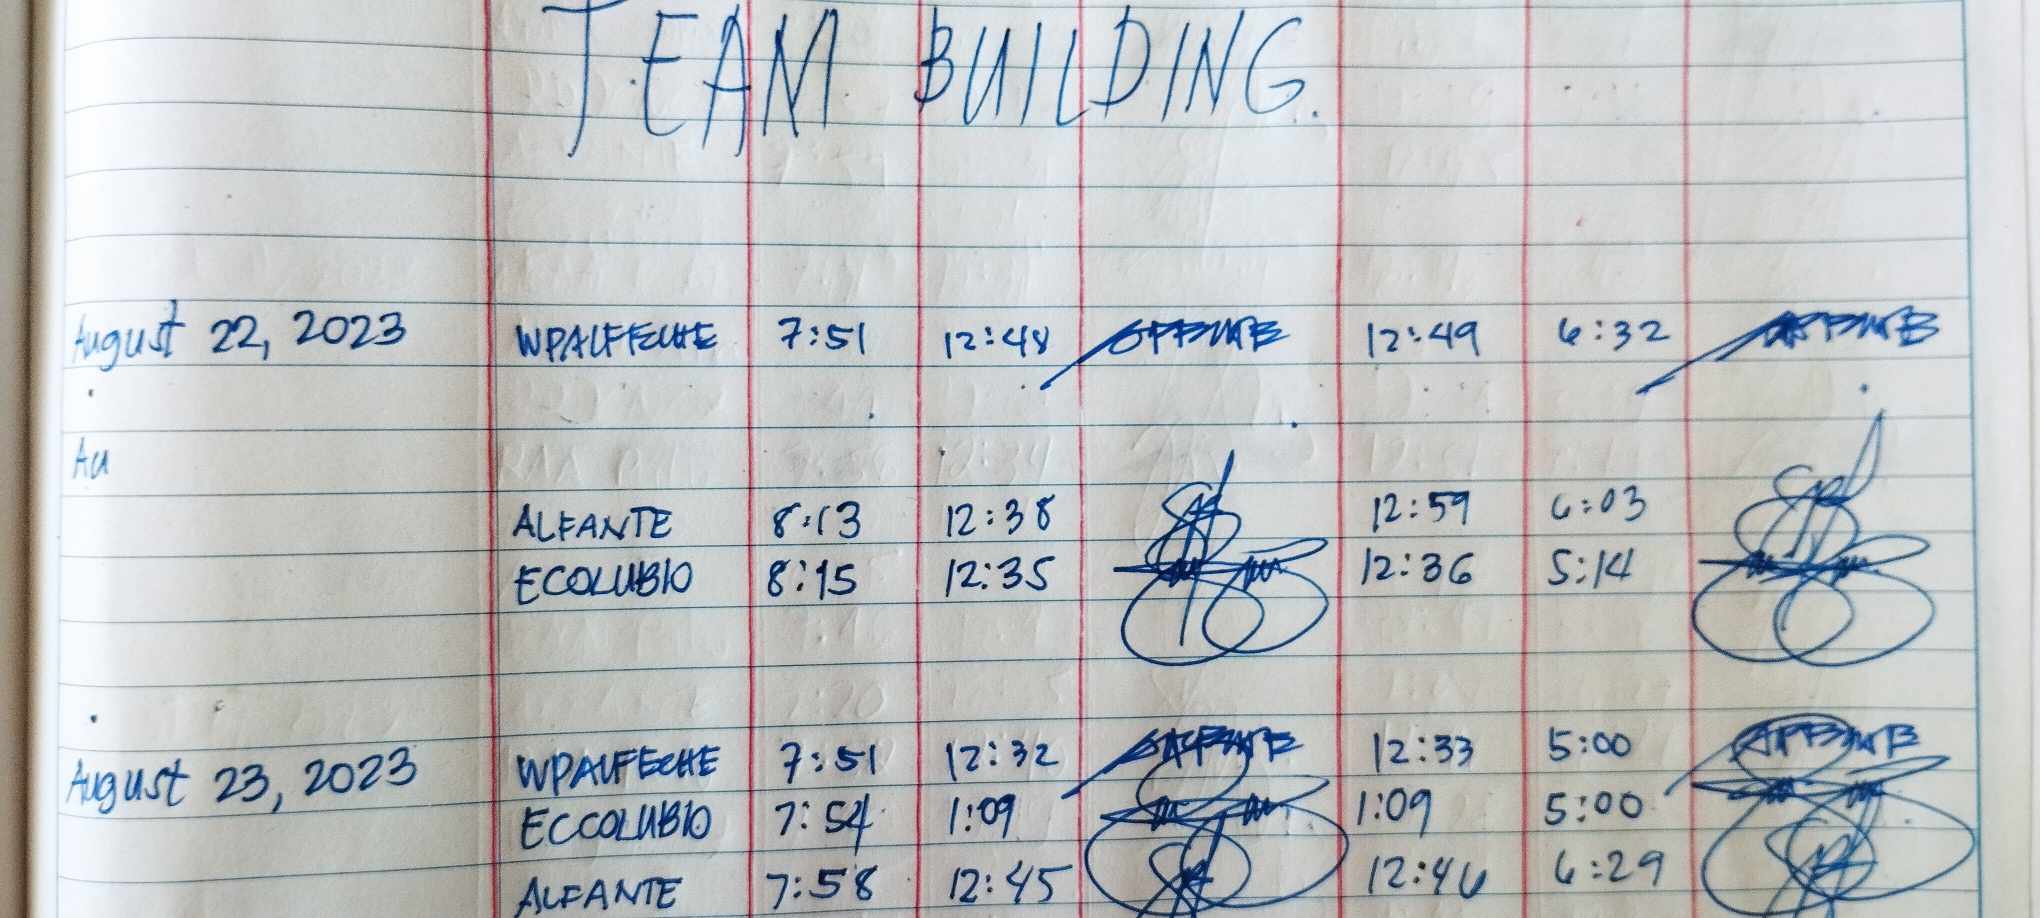 TEAM BUILDING.
August 22, 2023 WPALFECHE 7:51 12:48 12:49 6:32
Au
ALFANTE 8:13 12:38 12:59 6:03
ECOLUBIO 8:15 12:35 12:36 5:14
August 23, 2023 WPALFECHE 7:51 12:32 12:33 5:00
ECCOLUBIO 7:54 1:09 1:09 5:00
ALFANTE 7:58 12:45 12:46 6:29